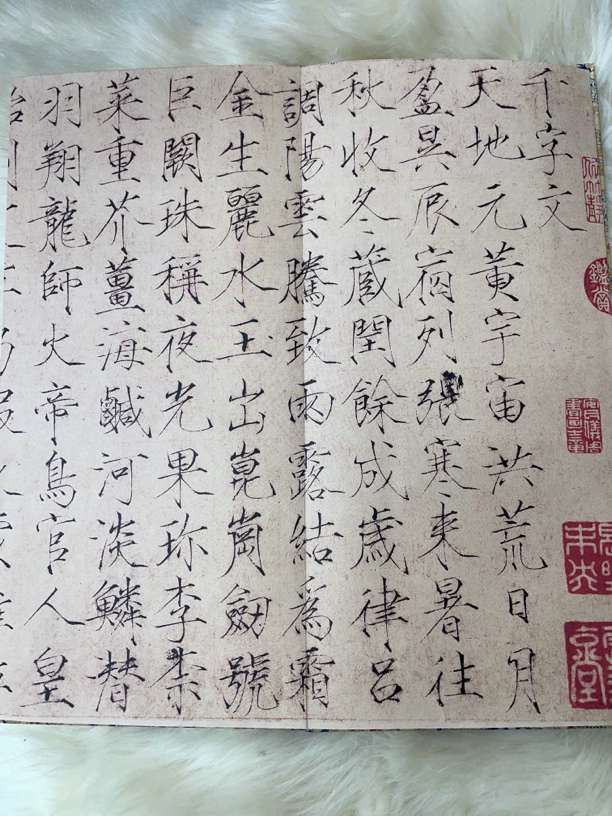 千字文
天地元黃宇宙洪荒日月
盈昃辰宿列張寒来暑往
秋收冬蔵閏餘成歲律呂
調陽雲騰致雨露結為霜
金生麗水玉出崑崗劒號
巨闕珠稱夜光果珎李柰
菜重芥薑海鹹河淡鱗潛
羽翔龍師火帝鳥官人皇
鑑賞